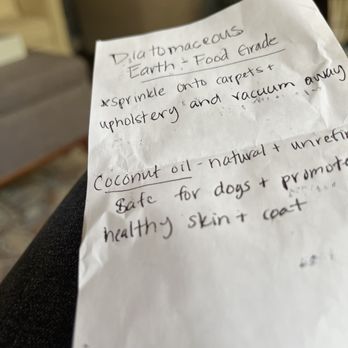 Diatomaceous
Earth - Food Grade
*sprinkle onto carpets +
upholstery and vacuum away
Coconut oil - natural + unrefin
safe for dogs + promote
healthy skin + coat